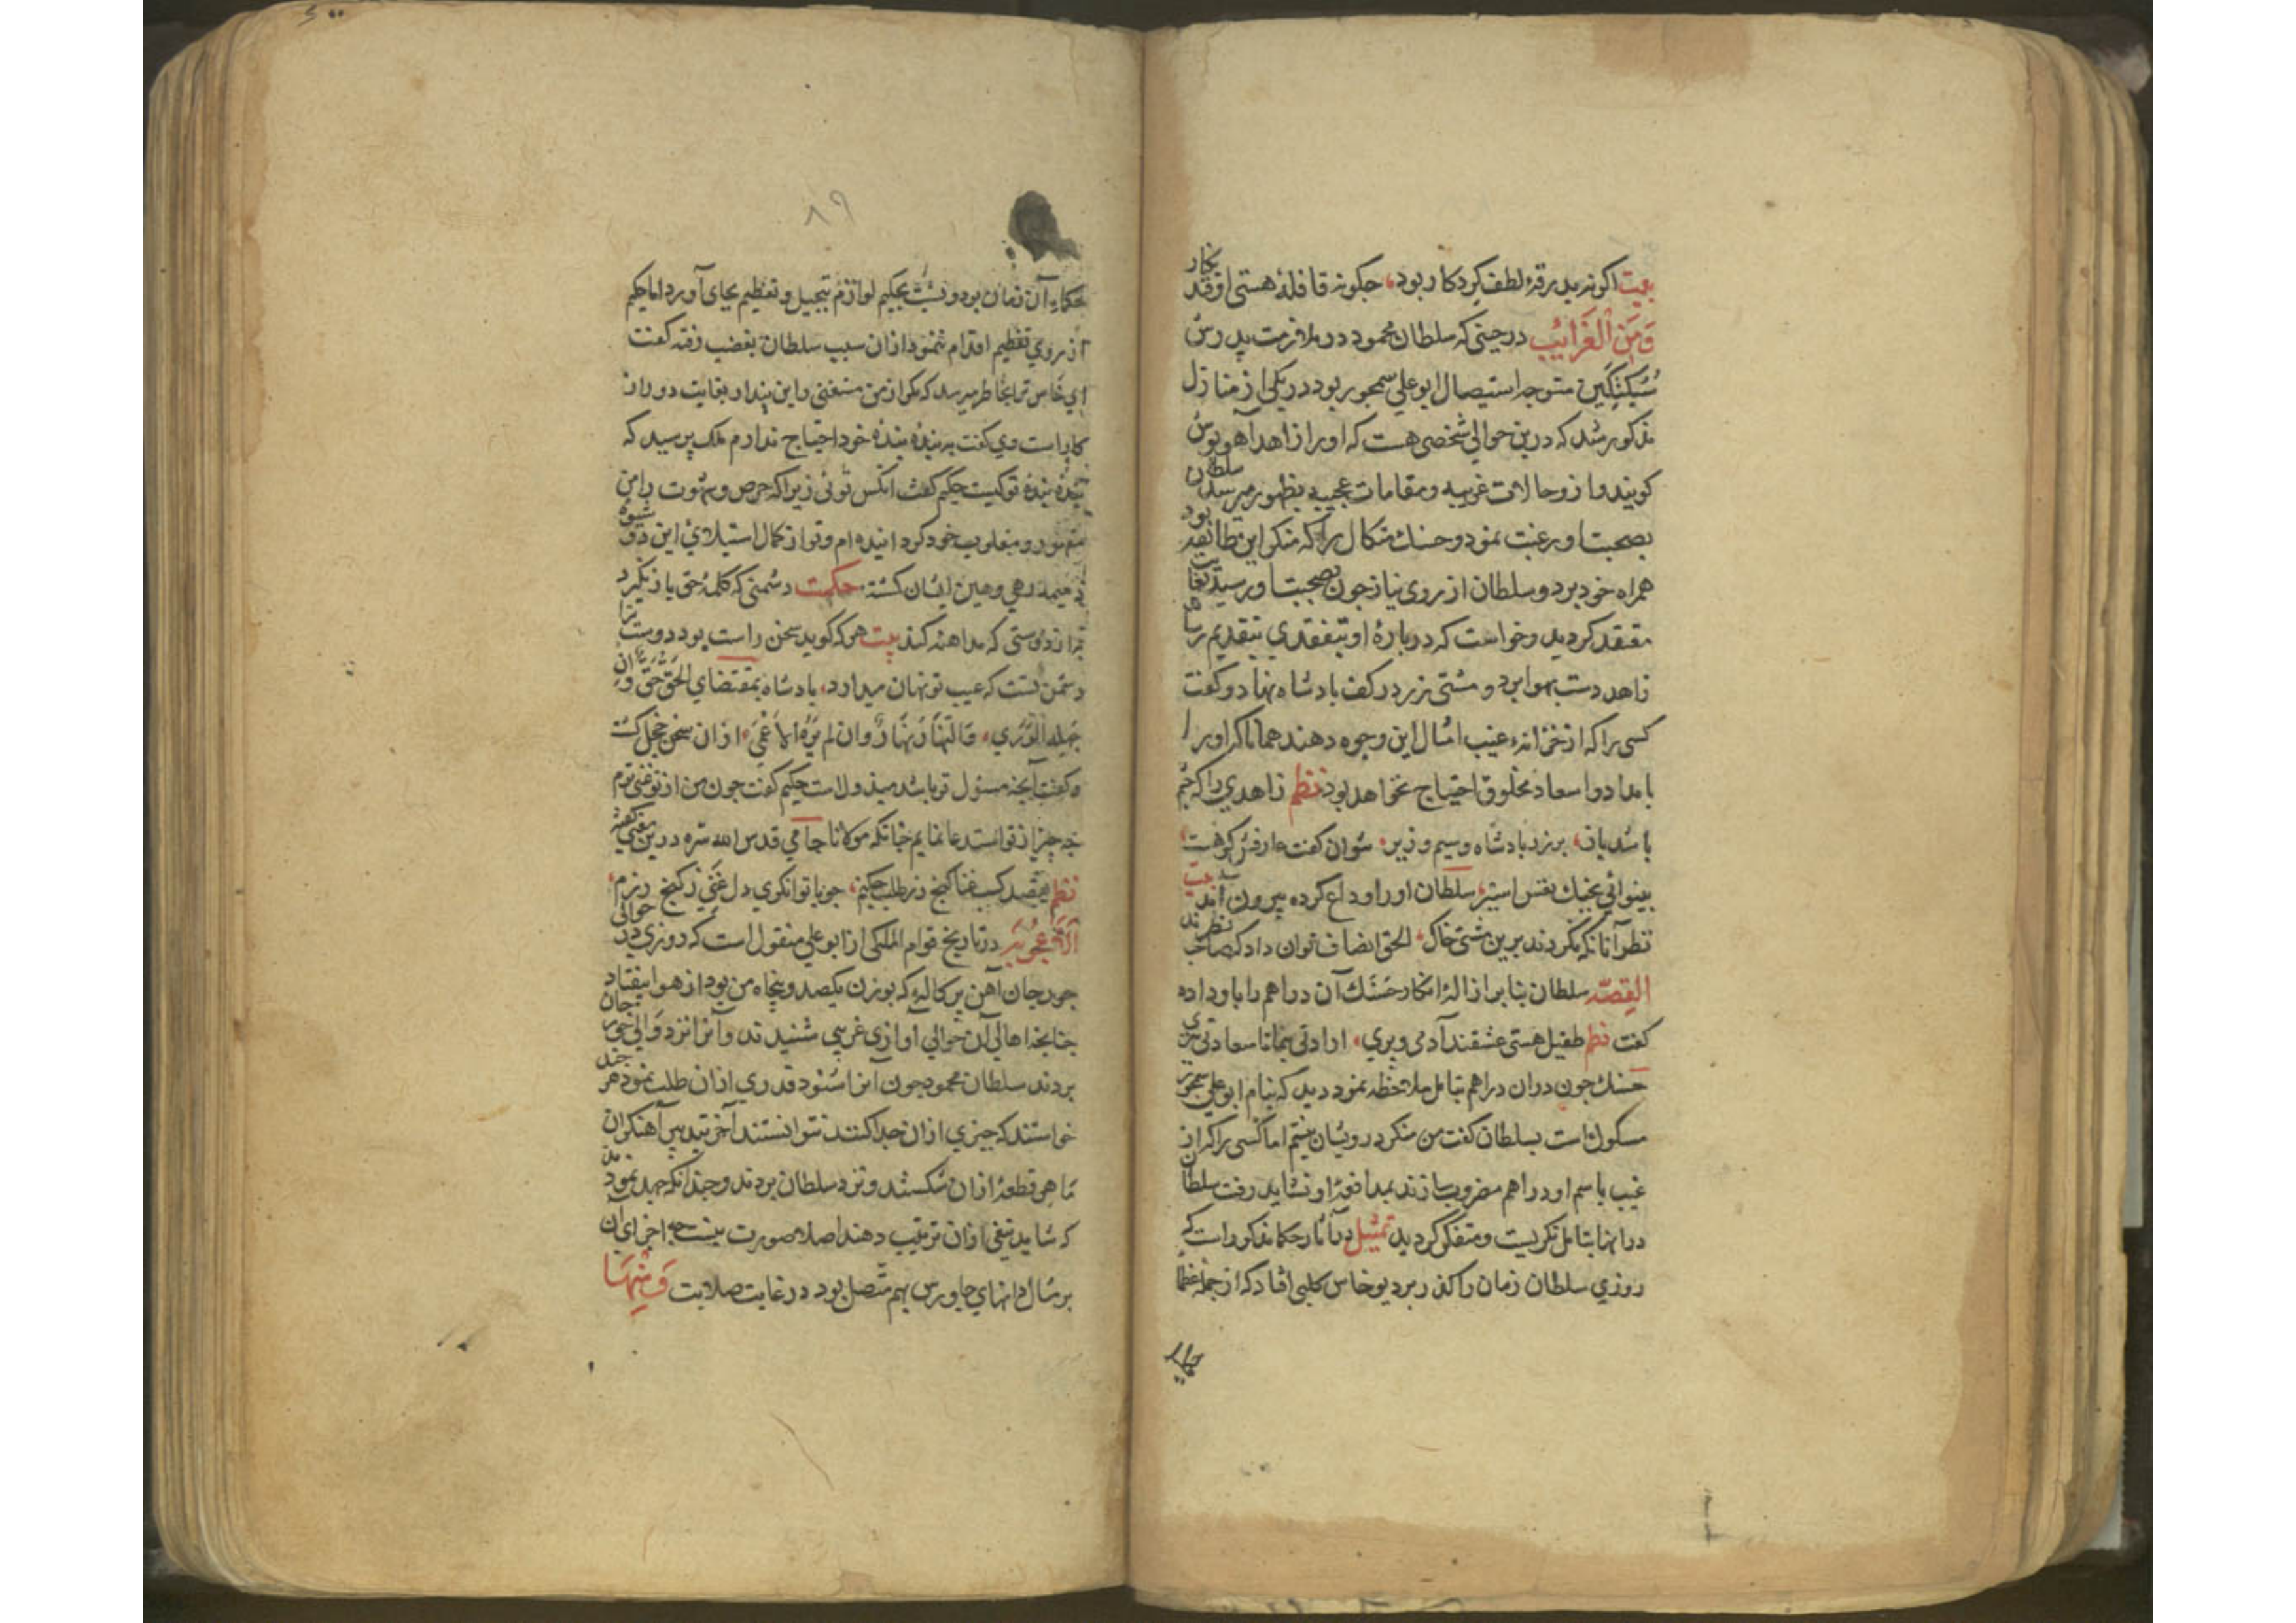 بیت اکر نه بدرقهٔ لطف کردکار بود، جکونه قافلهٔ هستی اوفتد بکار
وَمِنَ الْغَرَائِبِ درحینی که سلطان محمود در ملازمت پدرش
سُبُکْتَکین متوجه استیصال ابوعلی سمجور بود در یکی از منازل
مذکور شد که درین حوالی شخصی هست که او را زاهد آهوپوش
کویند و ازو حالات غریبه و مقامات عجیبه بظهور میرسد سلطان
بصحبت او رغبت نمود و حسنک میکال را که منکر این طایفه بود
همراه خود برد و سلطان از روی نیاز جون بصحبت او رسید بغایت
معتقد کردید و خواست که درباره او تفقدی بتقدیم رساند
زاهد دست بهوا برد و مشتی زر در کف پادشاه نهاد و کفت
کسی را که از خزانهٔ غیب امثال این وجوه دهند همانا که او را
بامداد و اسعاد مخلوق احتیاج نخواهد بود نظم زاهدی را که جشم
باشد باز، بر زر پادشاه و سیم وزیر، نتوان کفت عارفش کو هست
بینوائی بجنک نفس اسیر، سلطان او را وداع کرده بیرون آمد بیت
نظر آنانکه نکردند برین مشتی خاک، الحق انصاف توان داد که صاحب نظرند
القصّه سلطان بنابر ازالهٔ انکار حسنک آن دراهم را باو داده
کفت نظم طفیل هستی عشقند آدمی و پری، ارادتی بنما تا سعادتی ببری
حسنک جون دران دراهم بتامل ملاحظه نمود دید که بنام ابوعلی سمجور
مسکوک است بسلطان کفت من منکر درویشان نیستم اما کسی را که از
غیب باسم او دراهم مضروب سازند بمدافعهٔ او نشاید رفت سلطان
درانها بتامل نکریست و متفکر کردید تمثیل در آثار حکما مذکور است که
روزی سلطان زمان را کذر بر دیوخاس کلبی افتاد که از جمله عظما
حکمای
۸۹
حکمای آن زمان بود و نسبت بحکیم لوازم تبجیل و تعظیم بجای آورد اما حکیم
از روی تعظیم اقدام ننمود ازان سبب سلطان بغضب رفته کفت
ای خاس ترا بخاطر میرسد که مکر از من مستغنی و این پندار بغایت دور از
کار است وی کفت به بندهٔ بندهٔ خود احتیاج ندارم ملک پرسید که
بندهٔ بندهٔ تو کیست حکیم کفت انکس توئی زیرا که حرص و شهوت را من
مقهور و مغلوب خود کردانیده ام و تو از کمال استیلای این دو شیوه
ذمیمه رهی و رهین ایشان کشته. حکمت دشمنی که کلمهٔ حق باز نکیرد
به از دوستی که مداهنه کند بیت هر که کوید سخن راست بود دوست ترا
دشمن تست که عیب تو نهان میدارد، پادشاه بمقتضای الحَقُّ حَقٌّ وَاِن
جهله الوری، وَالنَّهَارُ نَهَارٌ وان لم یَرَهُ الاَعْمَی، ازان سخن خجل کشت
و کفت آنجه مسئول تو باشد مبذولست حکیم کفت جون من از تو غنی ترم
جه جیز از تو استدعا نمایم جنانکه مولانا جامی قدس الله سره درین معنی کفته
نظم بقصد کسب غنا کنج زر طلب جکنم، جو با توانکری دل غنی ز کنج زرم،
اُلاُعْجُوبَة در تاریخ قوام الملکی از ابوعلی منقول است که روزی در حوالی
جورجان آهن پرکالهٔ که بوزن یکصد و پنجاه من بود از هوا بیفتاد
جنانجه اهالی آن حوالی آوازی غریبی شنیدند و آنرا نزد والی جورجان
بردند سلطان محمود جون آنرا شنود قدری ازان طلب نمود هر جند
خواستند که جیزی ازان جدا کنند نتوانستند آخر بتدبیر آهنکران
ماهر قطعهٔ ازان شکستند و نزد سلطان بردند و جندانکه جهد نمودند
که شاید تیغی ازان ترتیب دهند اصلا صورت نبست جه اجزای آن
بر مثال دانهای جاورس بهم متّصل بود در غایت صلابت وَمِنْهَا